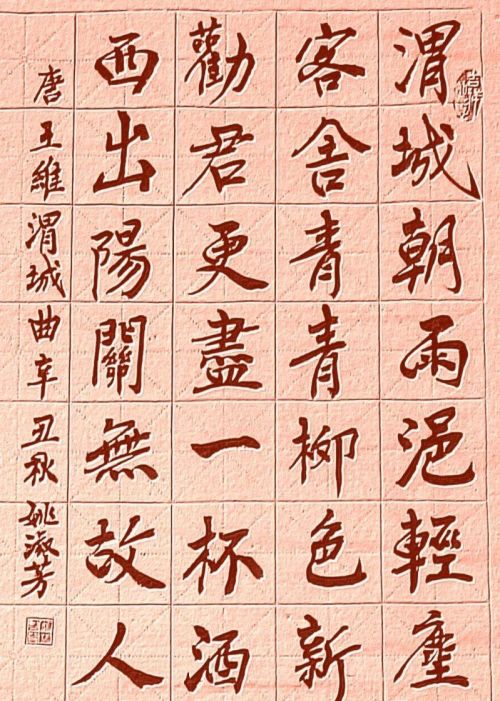 渭城朝雨浥輕塵
客舍青青柳色新
勸君更盡一杯酒
西出陽關無故人
唐王維渭城曲辛丑秋姚淑芳